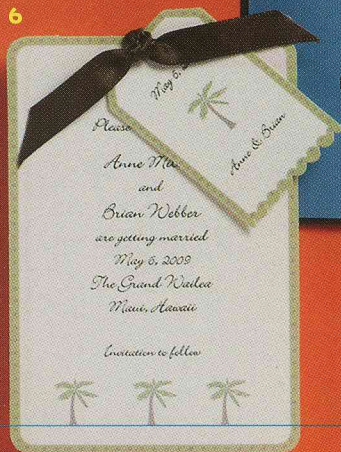 6
May 6, 2
Anne & Brian
Please
Anne
and
Brian Webber
are getting married
May 6, 2009
The Grand Wailea
Maui, Hawaii
Invitation to follow